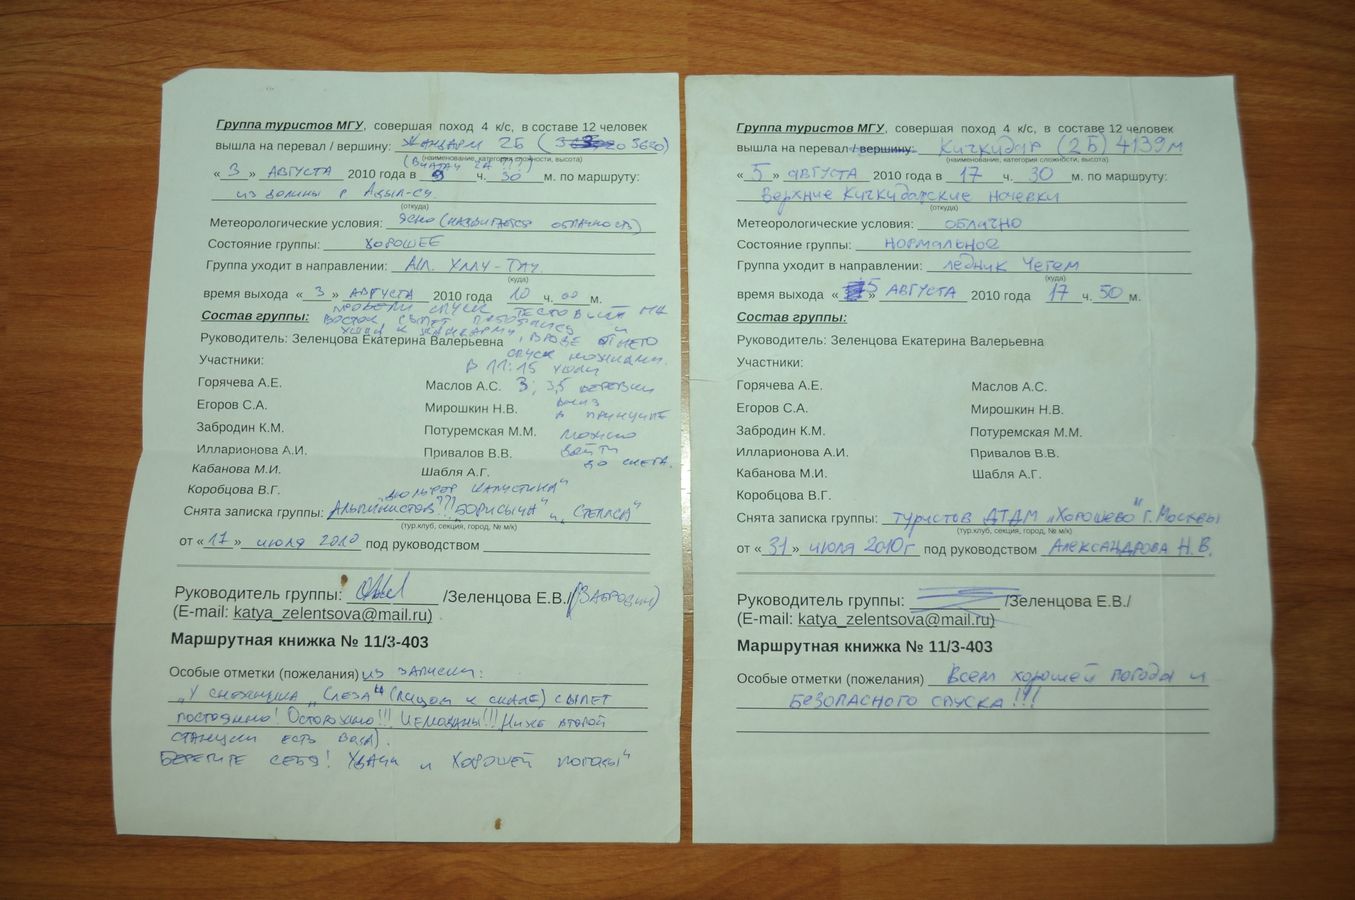 Группа туристов МГУ, совершая поход 4 к/с, в составе 12 человек
вышла на перевал / вершину: Жандарм 2Б (3620 3650)
(наименование, категория сложности, высота)
« 3 » АВГУСТА 2010 года в 9 ч. 30 м. по маршруту:
из долины р Адыл-су
(откуда)
Метеорологические условия: ЯСНО (НАДВИГАЕТСЯ ОБЛАЧНОСТЬ)
Состояние группы: ХОРОШЕЕ
Группа уходит в направлении: А/Л. УЛЛУ-ТАУ.
(куда)
время выхода « 3 » АВГУСТА 2010 года 10 ч. 00 м.
ПРОВЕЛИ СПУСК
ВОСТОК СЫПЕТ
Состав группы: УШЛИ К ЖАНДАРМУ И
Руководитель: Зеленцова Екатерина Валерьевна , ВРОДЕ ОТ НЕГО
СПУСК
Участники: В 11:15 УШЛИ
Горячева А.Е. Маслов А.С. 3; 3,5 ВЕРЕВКИ
ВНИЗ
Егоров С.А. Мирошкин Н.В. В ПРИНЦИПЕ
Забродин К.М. Потуремская М.М. МОЖНО
Илларионова А.И. Привалов В.В. ДОЙТИ
ДО СНЕГА.
Кабанова М.И. Шабля А.Г.
Коробцова В.Г. КАПУСТИНА"
Снята записка группы: Альпинистов!!! „БОРИСЫЧА" и „СТЕПАСА"
(тур.клуб, секция, город, № м/к)
от « 17 » июля 2010 под руководством
Руководитель группы: /Зеленцова Е.В./ (ЗАБРОДИН)
(E-mail: katya_zelentsova@mail.ru)
Маршрутная книжка № 11/3-403
Особые отметки (пожелания) ИЗ ЗАПИСКИ:
„У СНЕЖНИКА „СЛЕЗА" (ЛИЦОМ К СКАЛЕ) СЫПЕТ
ПОСТОЯННО! ОСТОРОЖНО!!! ЧЕМОДАНЫ!!! НИЖЕ ВТОРОЙ
СТАНЦИИ ЕСТЬ ВОДА).
БЕРЕГИТЕ СЕБЯ! УДАЧИ И ХОРОШЕЙ ПОГОДЫ"
Группа туристов МГУ, совершая поход 4 к/с, в составе 12 человек
вышла на перевал / вершину: Кичкидар (2Б) 4139м
(наименование, категория сложности, высота)
« 5 » августа 2010 года в 17 ч. 30 м. по маршруту:
Верхние Кичкидарские ночевки
(откуда)
Метеорологические условия: ОБЛАЧНО
Состояние группы: НОРМАЛЬНОЕ
Группа уходит в направлении: ледник Чегем
(куда)
время выхода « 5 » АВГУСТА 2010 года 17 ч. 50 м.
Состав группы:
Руководитель: Зеленцова Екатерина Валерьевна
Участники:
Горячева А.Е. Маслов А.С.
Егоров С.А. Мирошкин Н.В.
Забродин К.М. Потуремская М.М.
Илларионова А.И. Привалов В.В.
Кабанова М.И. Шабля А.Г.
Коробцова В.Г.
Снята записка группы: туристов ДТДМ „Хорошево" г. Москвы
(тур.клуб, секция, город, № м/к)
от « 31 » июля 2010г под руководством АЛЕКСАНДРОВА Н.В.
Руководитель группы: /Зеленцова Е.В./
(E-mail: katya_zelentsova@mail.ru)
Маршрутная книжка № 11/3-403
Особые отметки (пожелания) Всем хорошей погоды и
БЕЗОПАСНОГО СПУСКА!!!